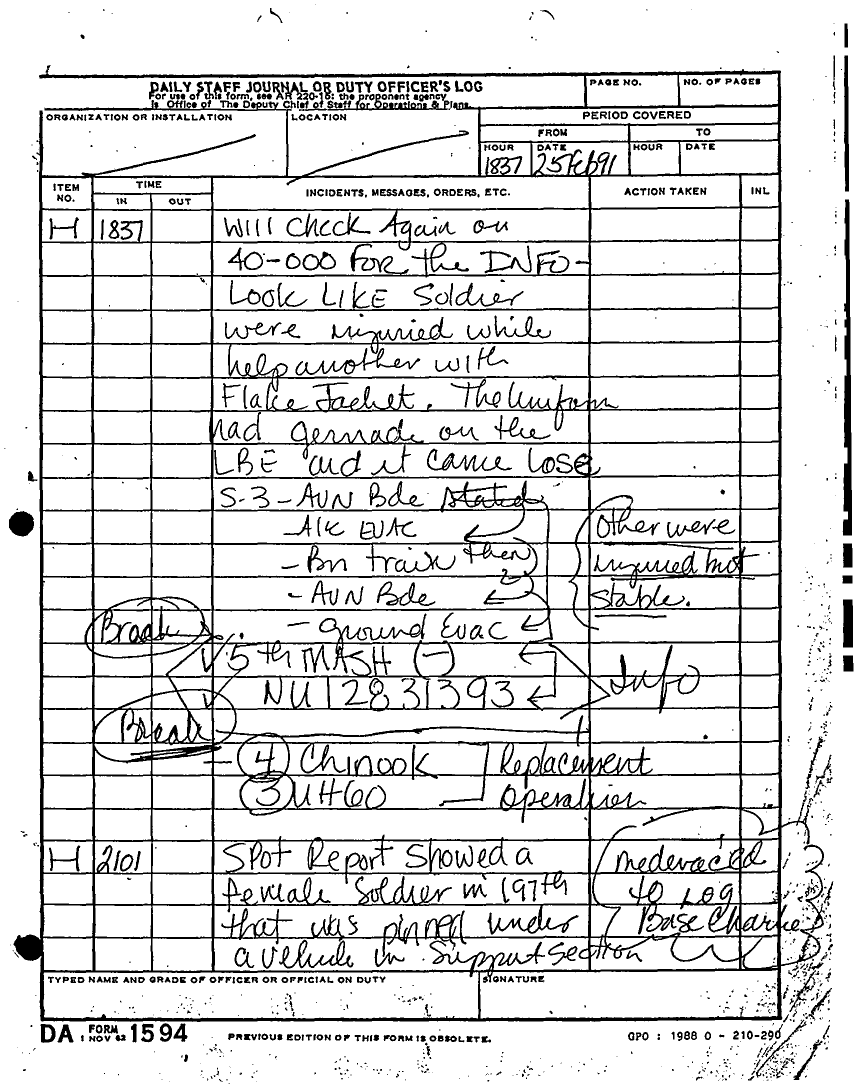 DAILY STAFF JOURNAL OR DUTY OFFICER'S LOG
For use of this form, see AR 220-15; the proponent agency
is Office of The Deputy Chief of Staff for Operations & Plans.
PAGE NO.
NO. OF PAGES
ORGANIZATION OR INSTALLATION
LOCATION
PERIOD COVERED
FROM
TO
HOUR
DATE
HOUR
DATE
1837
25 Feb 91
ITEM NO.
TIME
IN
OUT
INCIDENTS, MESSAGES, ORDERS, ETC.
ACTION TAKEN
INL
H 1837 Will Check Again on
40-000 FOR the INFO-
Look LIKE Soldier
were injuried while
help another with
Flake Jacket. The Uniform
had gernade on the
LBE and it came lose
S-3 - AVN Bde stated
- AIR EVAC
- Bn train then
- AVN Bde
- ground Evac
Other were
injuried but
stable.
Break
5th MASH (-)
NU 12831393
Info
Break
- 4 Chinook
3 UH60
Replacement
Operation
H 2101 SPot Report Showed a
female Soldier in 197th
that was pinned under
a vehicle in Support Section
medevaced
to LOG
Base Charlie
TYPED NAME AND GRADE OF OFFICER OR OFFICIAL ON DUTY
SIGNATURE
DA FORM 1 NOV 62 1594
PREVIOUS EDITION OF THIS FORM IS OBSOLETE.
GPO : 1988 O - 210-290